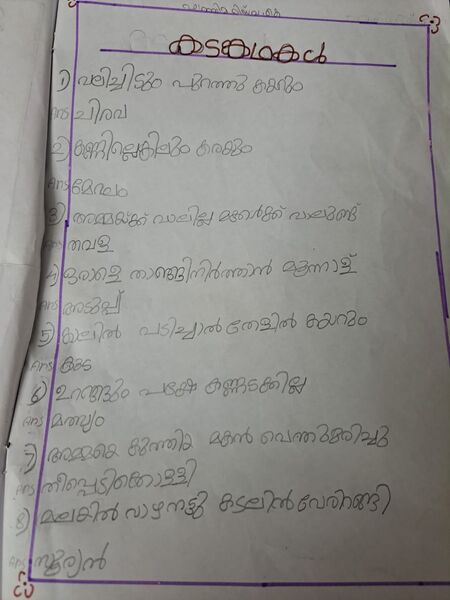 കടങ്കഥകൾ
1) വലിച്ചിടും പുറത്തു കയറും
Ans ചിരവ
2) കണ്ണില്ലെങ്കിലും കരയും
Ans മേഘം
3) അമ്മയ്ക്ക് വാലില്ല മകൾക്ക് വാലുണ്ട്
Ans തവള
4) ഒരാളെ താങ്ങിനിർത്താൻ മൂന്നാള്
Ans അടുപ്പ്
5) കാലിൽ പടിച്ചാൽ തോളിൽ കയറും
Ans കുട
6) ഉറങ്ങും പക്ഷേ കണ്ണടക്കില്ല
Ans മത്സ്യം
7) അമ്മയെ കുത്തിയ മകൻ വെന്തുമരിച്ചു
Ans തീപ്പെട്ടിക്കൊള്ളി
8) മലയിൽ വാഴനട്ടു കടലിൽ വേരിറങ്ങി
Ans സൂര്യൻ